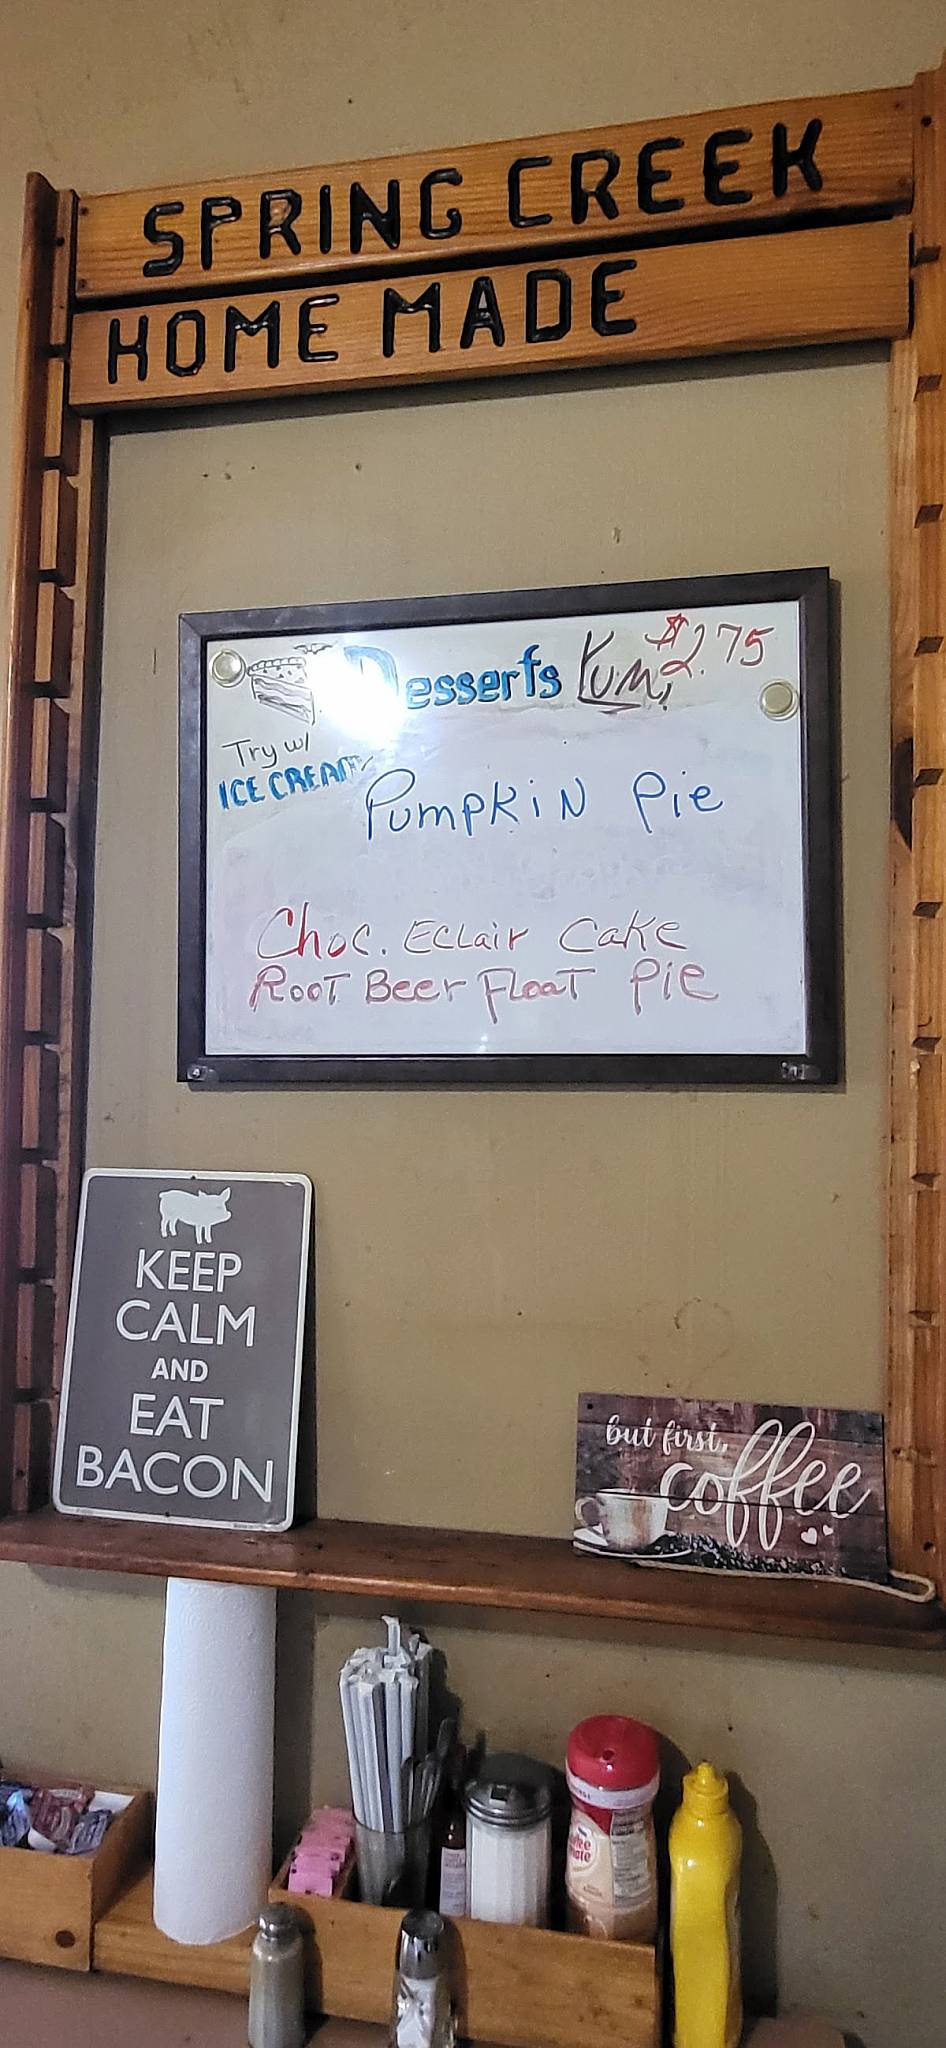 SPRING CREEK
HOME MADE
Desserts Yum! $2.75
Try w/
ICE CREAM
Pumpkin Pie
Choc. Eclair Cake
Root Beer Float Pie
KEEP
CALM
AND
EAT
BACON
but first,
coffee